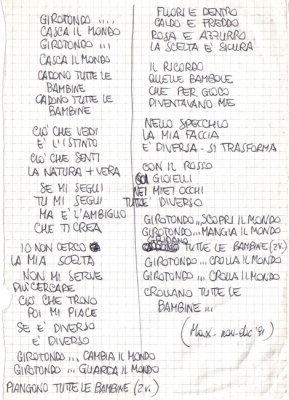 GIROTONDO ....
CASCA IL MONDO
GIROTONDO ...
CASCA IL MONDO
CADONO TUTTE LE
BAMBINE
CADONO TUTTE LE
BAMBINE
CIO' CHE VEDI
E' L'ISTINTO
CIO' CHE SENTI
LA NATURA + VERA
SE MI SEGUI
TU MI SEGUI
MA E' L'AMBIGUO
CHE TI CREA
IO NON CERCO
LA MIA SCELTA
NON MI SERVE
PIU' CERCARE
CIO' CHE TROVO
POI MI PIACE
SE E' DIVERSO
E' DIVERSO
GIROTONDO ... CAMBIA IL MONDO
GIROTONDO ... GUARDA IL MONDO
PIANGONO TUTTE LE BAMBINE (2v.)
FUORI E DENTRO
CALDO E FREDDO
ROSA E AZZURRO
LA SCELTA E' SICURA
IL RICORDO
QUELLE BAMBOLE
CHE PER GIOCO
DIVENTAVANO ME
NELLO SPECCHIO
LA MIA FACCIA
E' DIVERSA - SI TRASFORMA
CON IL ROSSO
GIOIELLI
NEI MIEI OCCHI
TUTTO DIVERSO
GIROTONDO ... SCOPRI IL MONDO
GIROTONDO ... MANGIA IL MONDO
TUTTE LE BAMBINE (2v.)
GIROTONDO ... CROLLA IL MONDO
GIROTONDO ... CROLLA IL MONDO
CROLLANO TUTTE LE
BAMBINE ...
nov-dic '81)